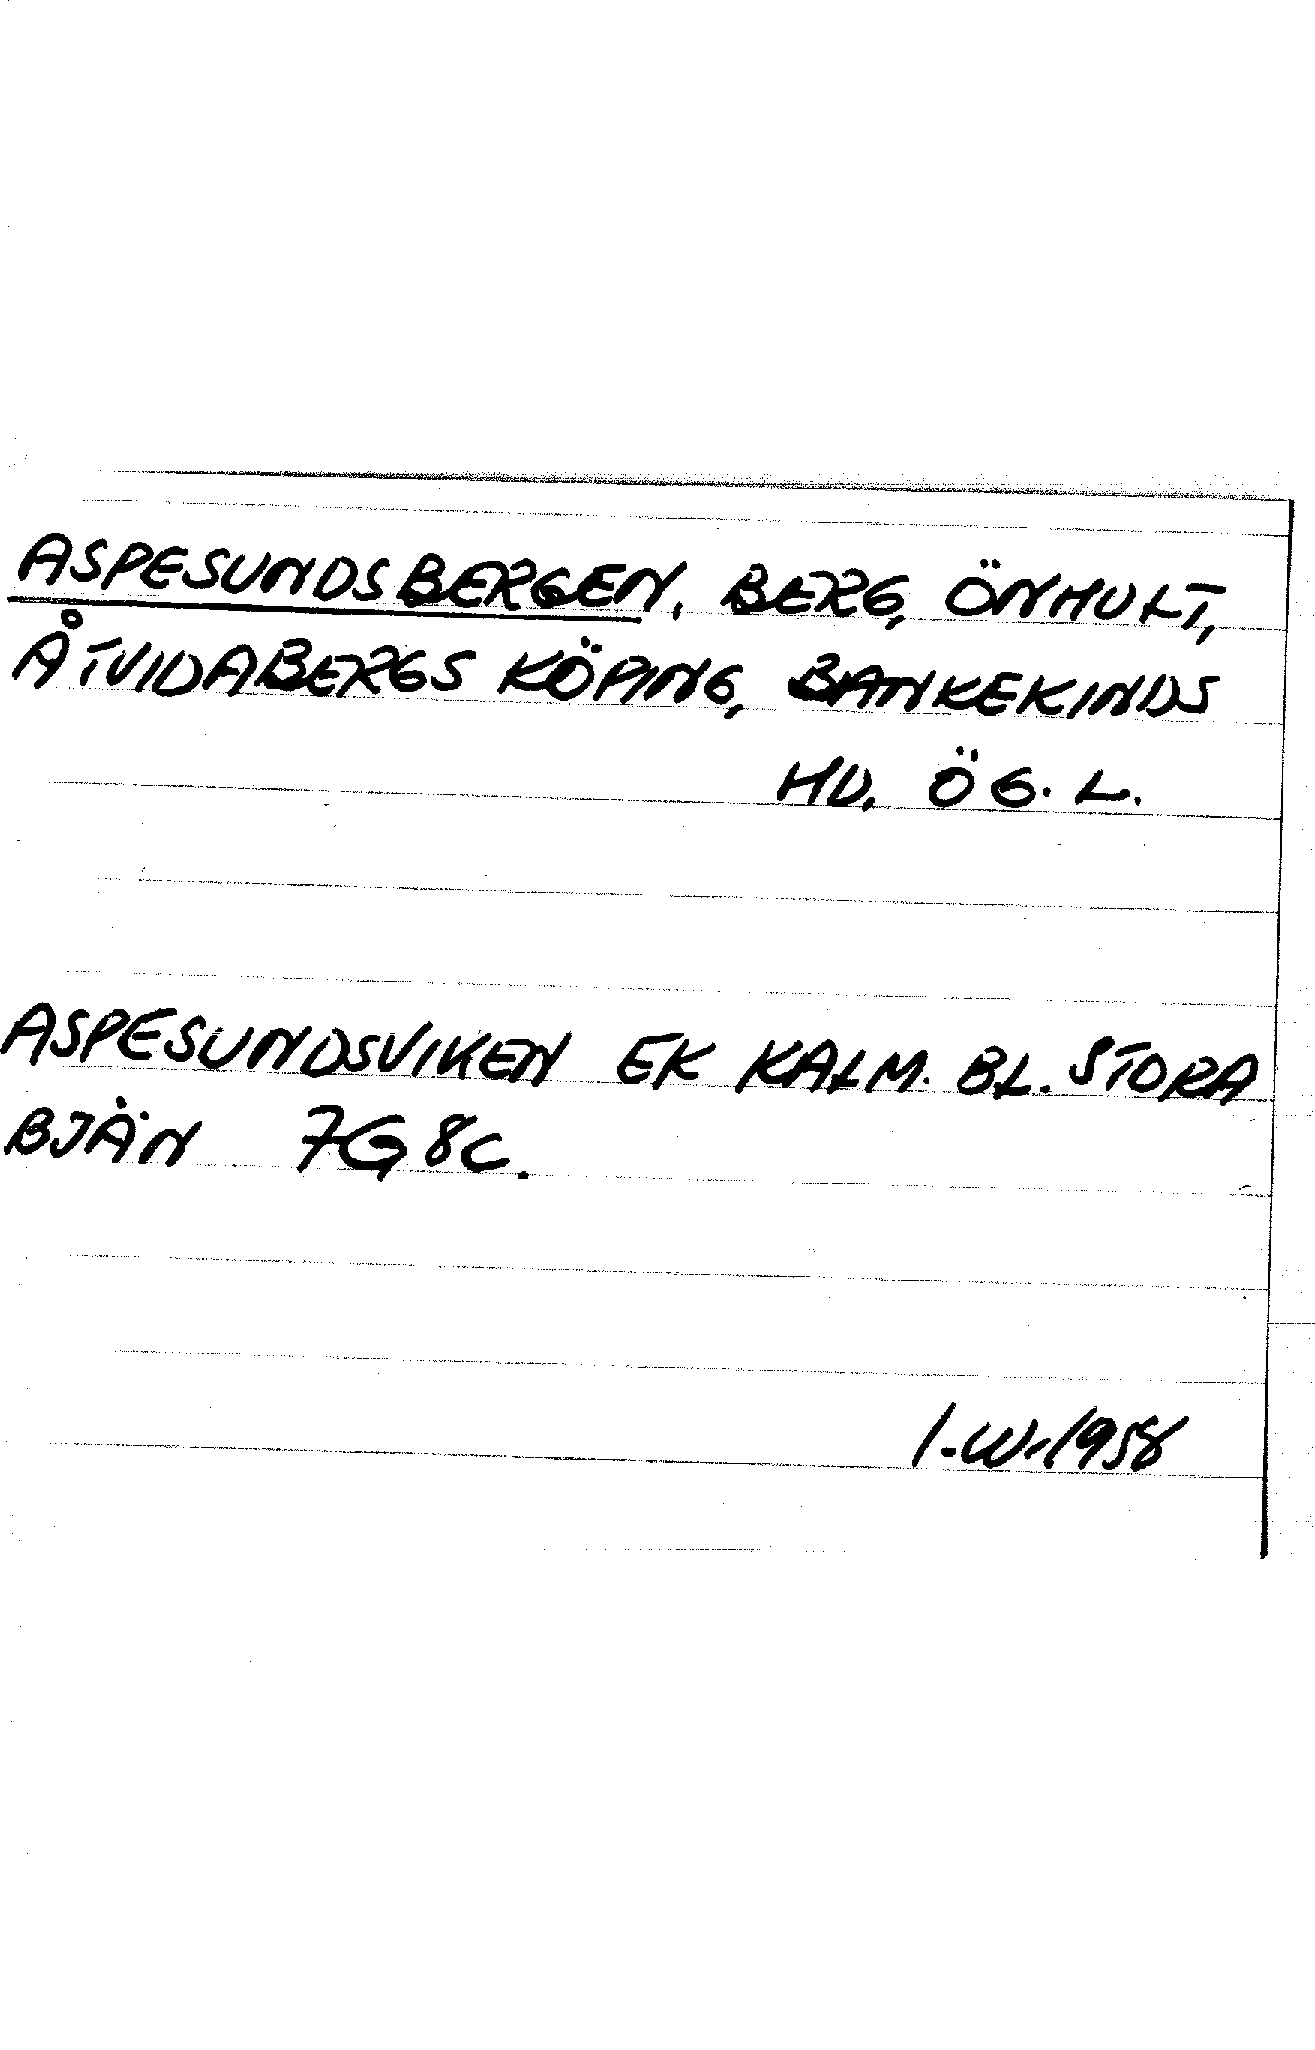 ASPESUNDSBERGEN, BERG, ÖNHULT,
ÅTVIDABERGS KÖPING, BANKEKINDS
HD. ÖG. L.
ASPESUNDSVIKEN EK KALM. BL. STORA
BJÄN 7G8C.
I.W.1958